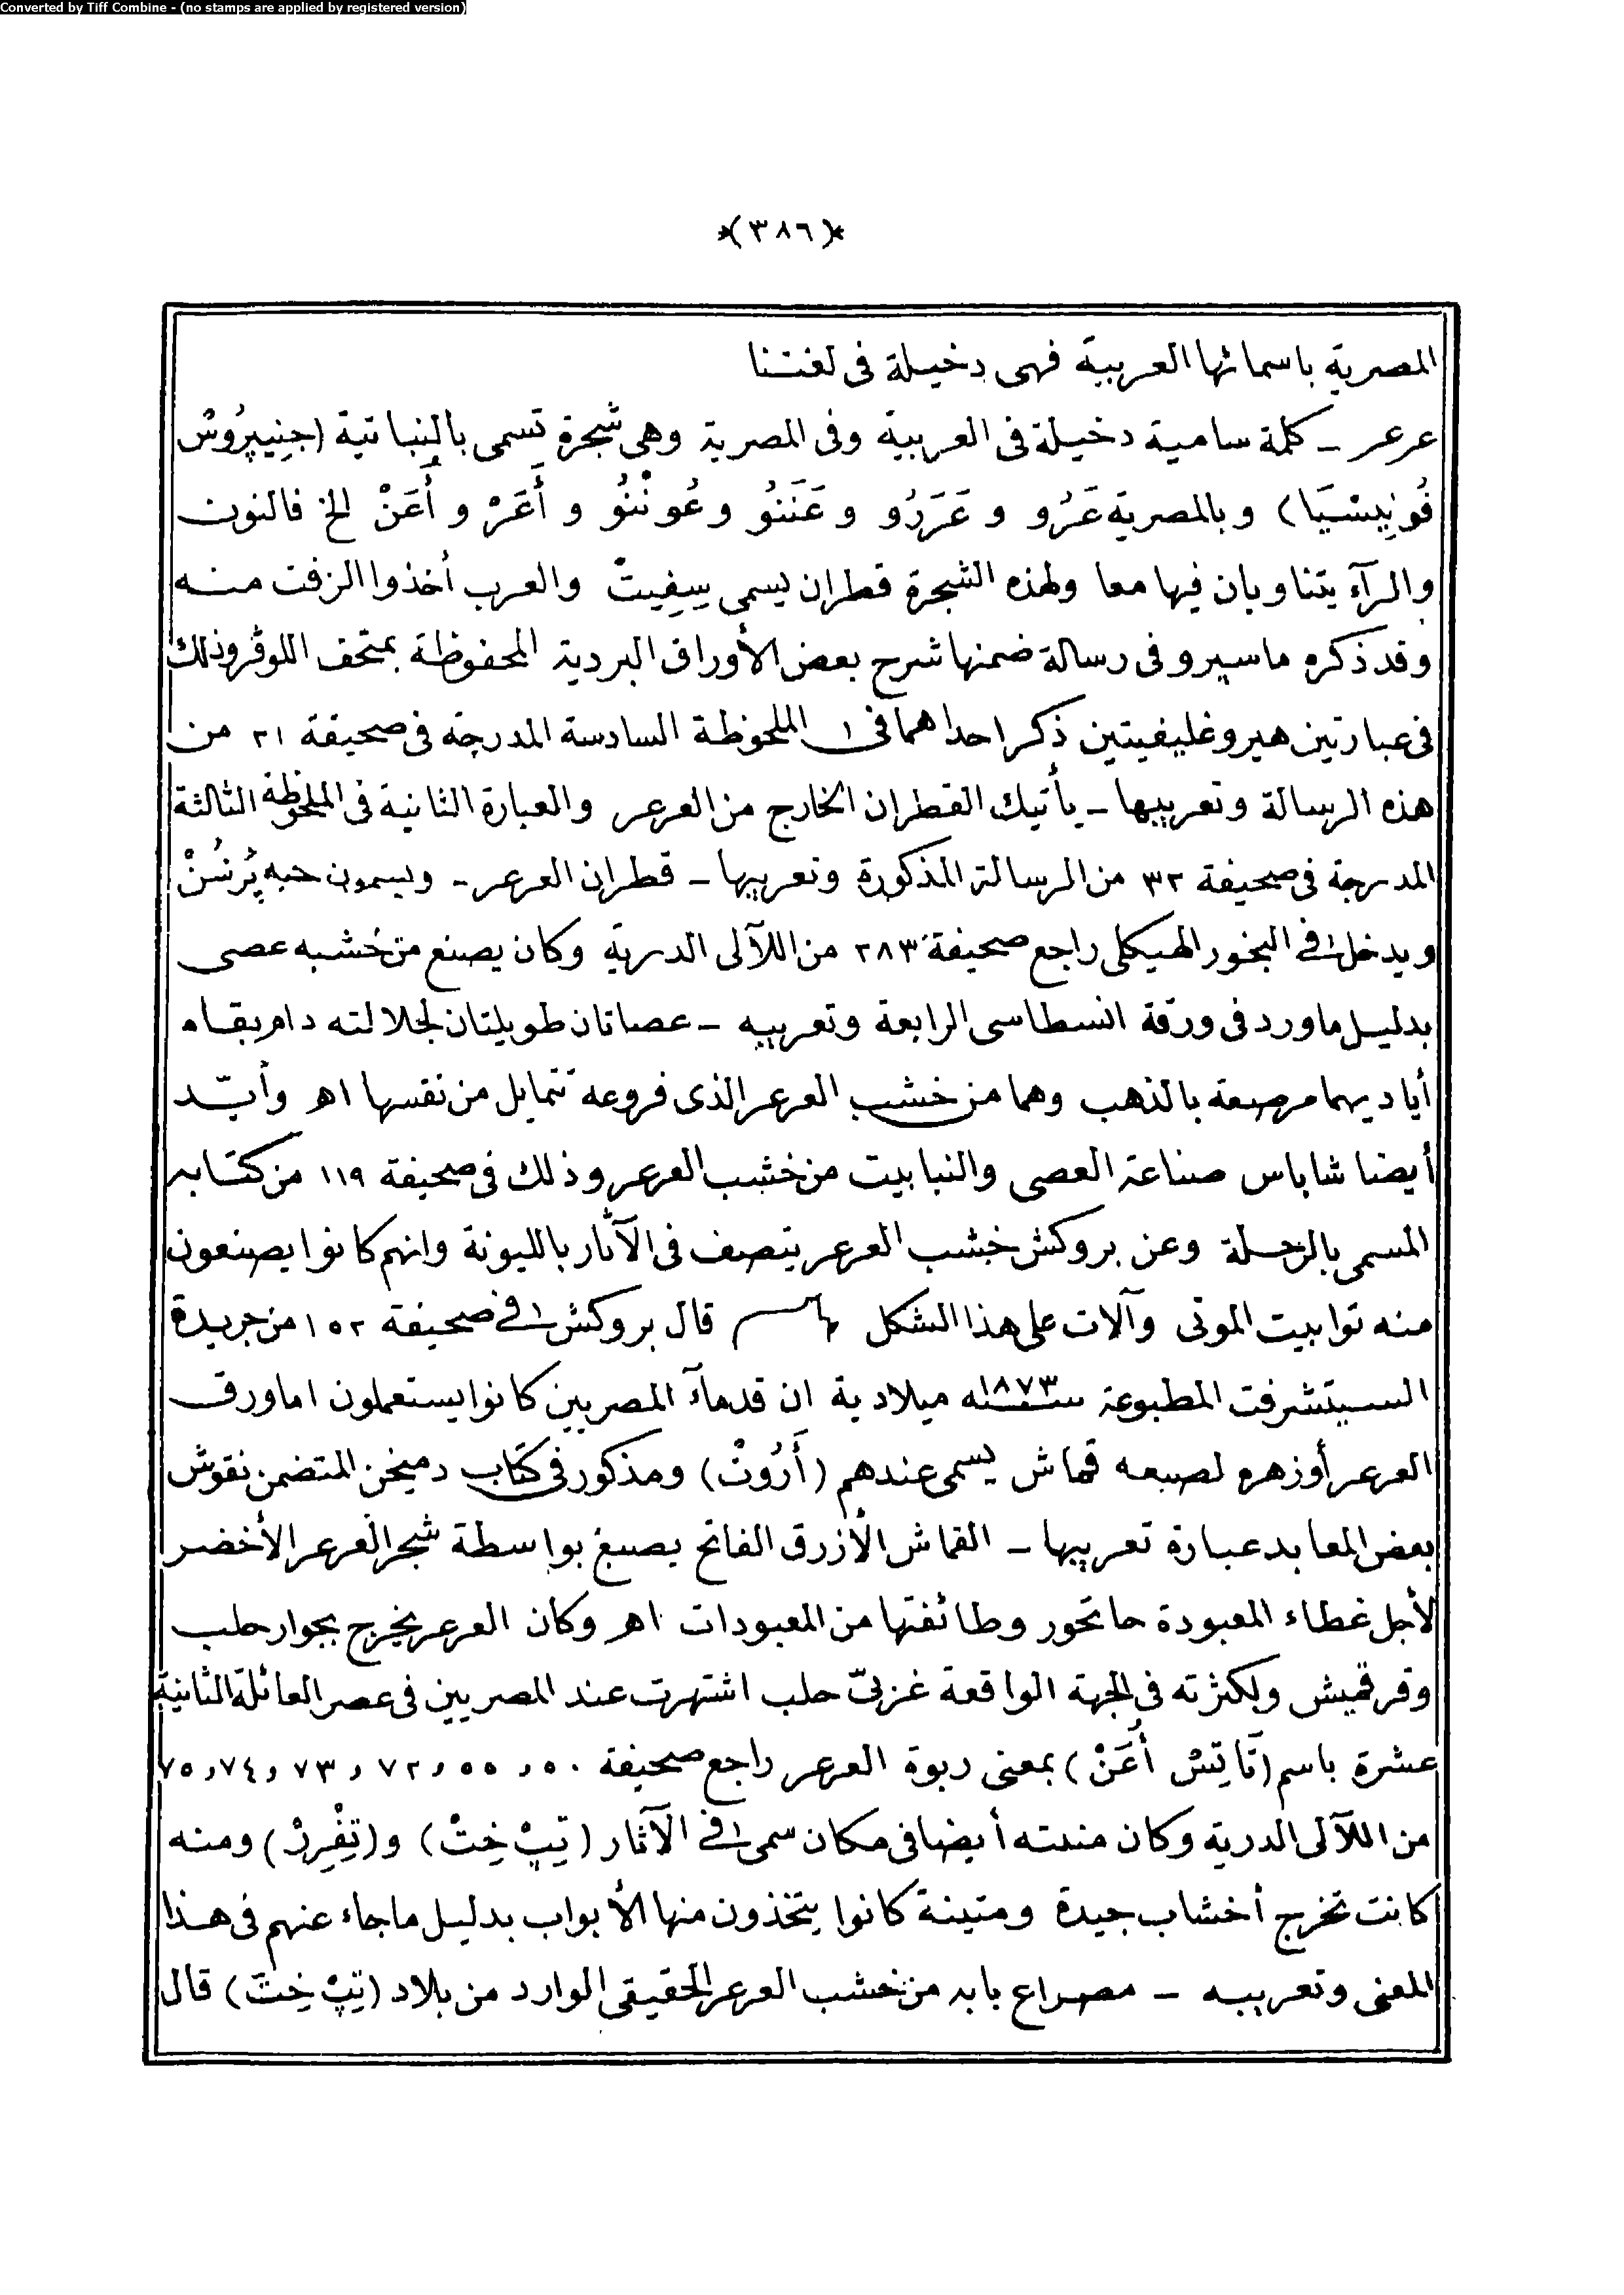 Converted by Tiff Combine - (no stamps are applied by registered version)
*(٣٨٦)*
المصرية باسمائها العربية فهى دخيلة فى لغتنا
عرعر ـ كلمة سامية دخيلة فى العربية وفى المصرية وهى شجرة تسمى بالنباتية (جِنِيپِرُوسْ
فُونِيسْيَا) وبالمصرية عَرُو و عَرَرُو و عَنَنُو و عُونْنُو و أَعَرْ و أُعَنْ الخ فالنون
والرآء يتناوبان فيها معا ولهذه الشجرة قطران يسمى سِفِيتْ والعرب أخذوا الزفت منه
وقد ذكره ماسپرو فى رسالة ضمنها شرح بعض الأوراق البردية المحفوظة بمتحف اللوڤر وذلك
فى عبارتين هيروغليفيتين ذكر احداهما فى الملحوظة السادسة المدرجة فى صحيفة ٢١ من
هذه الرسالة وتعريبها ـ يأتيك القطران الخارج من العرعر والعبارة الثانية فى الملحوظة الثالثة
المدرجة فى صحيفة ٣٢ من الرسالة المذكورة وتعريبها ـ قطران العرعر ـ ويسمون حبه پُرشُنْ
ويدخل فى البخور الهيكلى راجع صحيفة ٢٨٣ من اللآلى الدرية وكان يصنع من خشبه عصى
بدليل ماورد فى ورقة انسطاسى الرابعة وتعريبه ـ عصاتان طويلتان لجلالته دام بقاه
أياديهما مرصعة بالذهب وهما من خشب العرعر الذى فروعه تتمايل من نفسها اهـ وأيّد
أيضا شاباس صناعة العصى والنبابيت من خشب العرعر وذلك فى صحيفة ١١٩ من كتابه
المسمى بالرحلة وعن بروكش خشب العرعر يتصف فى الآثار بالليونة وانهم كانوا يصنعون
منه توابيت الموتى وآلات على هذا الشكل قال بروكش فى صحيفة ١٥٢ من جريدة
السيتشرفت المطبوعة سنة ١٨٧٣ ميلادية ان قدمآء المصريين كانوا يستعملون اما ورق
العرعر أو زهره لصبعه قماش يسمى عندهم (أَرُوتْ) ومذكور فى كتاب دميخن المتضمن نقوش
بعض المعابد عبارة تعريبها ـ القماش الأزرق الفاتح يصبغ بواسطة شجر العرعر الأخضر
لأجل غطاء المعبودة حاتحور وطائفتها من المعبودات اهـ وكان العرعر يخرج بجوار حلب
وقرقميش ولكثرته فى الجهة الواقعة غربىّ حلب اشتهرت عند المصريين فى عصر العائلة الثانية
عشرة باسم (تَاتِسْ أُعَنْ) بمعنى ربوة العرعر راجع صحيفة ٥٠ و ٥٥ و ٧٢ و ٧٣ و ٧٤ و ٧٥
من اللآلى الدرية وكان منبته أيضا فى مكان سمى فى الآثار (تِپْ خِتْ) و(تِفْرِرْ) ومنه
كانت تخرج أخشاب جيدة ومتينة كانوا يتخذون منها الأبواب بدليل ماجاء عنهم فى هذا
المعنى وتعريبه ـ مصراع بابه من خشب العرعر الحقيقى الوارد من بلاد (تِپْ خِتْ) قال